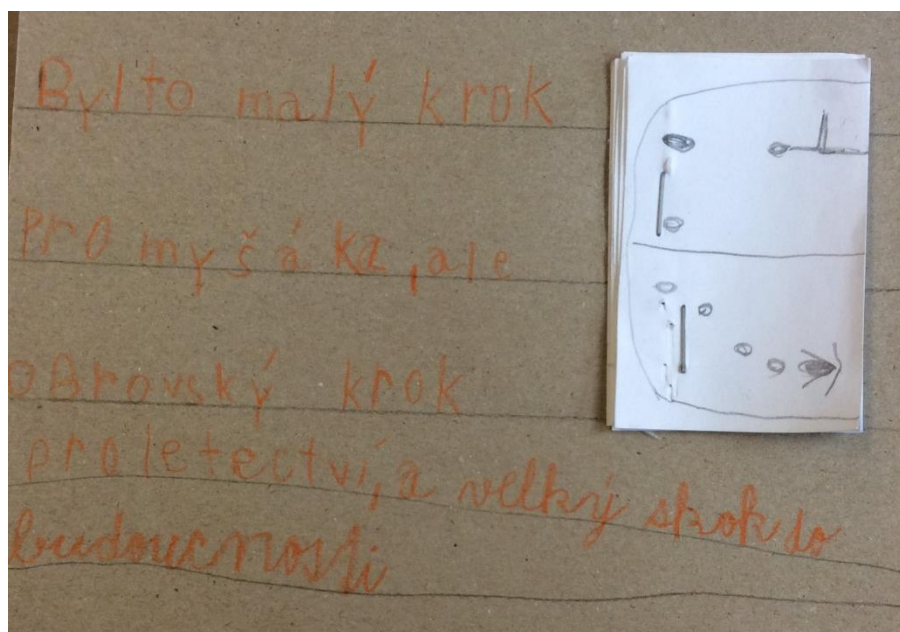 Bylto malý krok
Pro myšáka, ale
oBrovský krok
proletectví, a velký skok do
budoucnosti